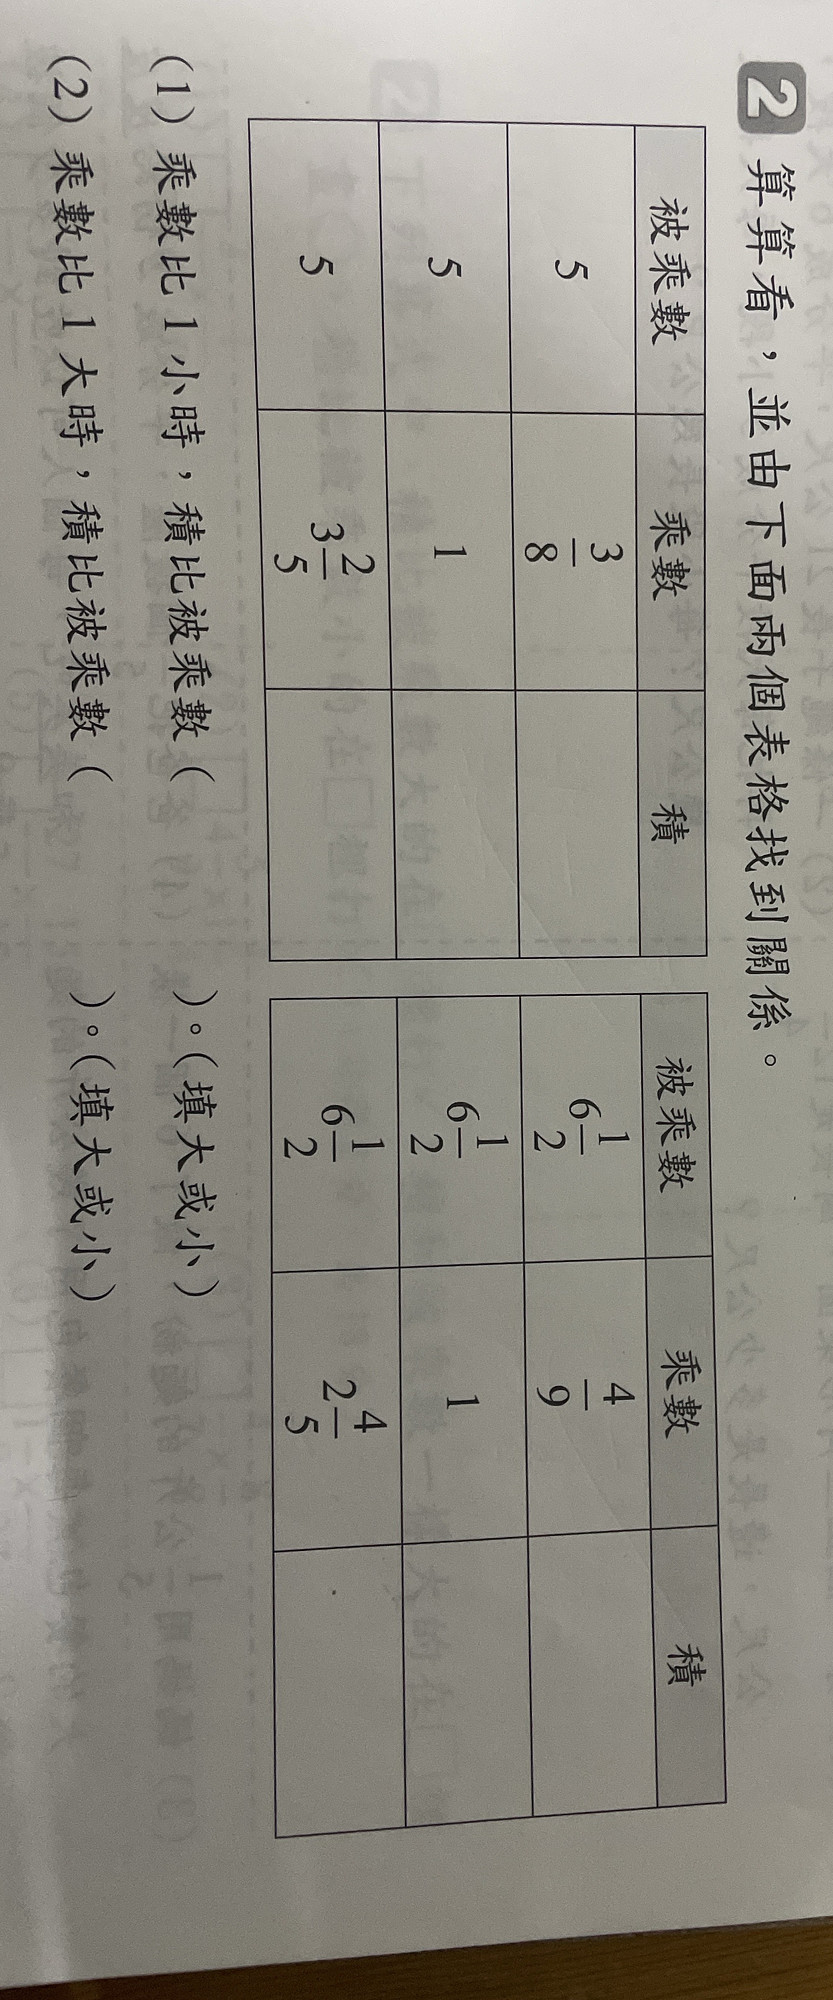 2 算算看，並由下面兩個表格找到關係。
被乘數 乘數 積
5 3/8
5 1
5 3 2/5
被乘數 乘數 積
6 1/2 4/9
6 1/2 1
6 1/2 2 4/5
(1) 乘數比1小時，積比被乘數（ ）。（填大或小）
(2) 乘數比1大時，積比被乘數（ ）。（填大或小）